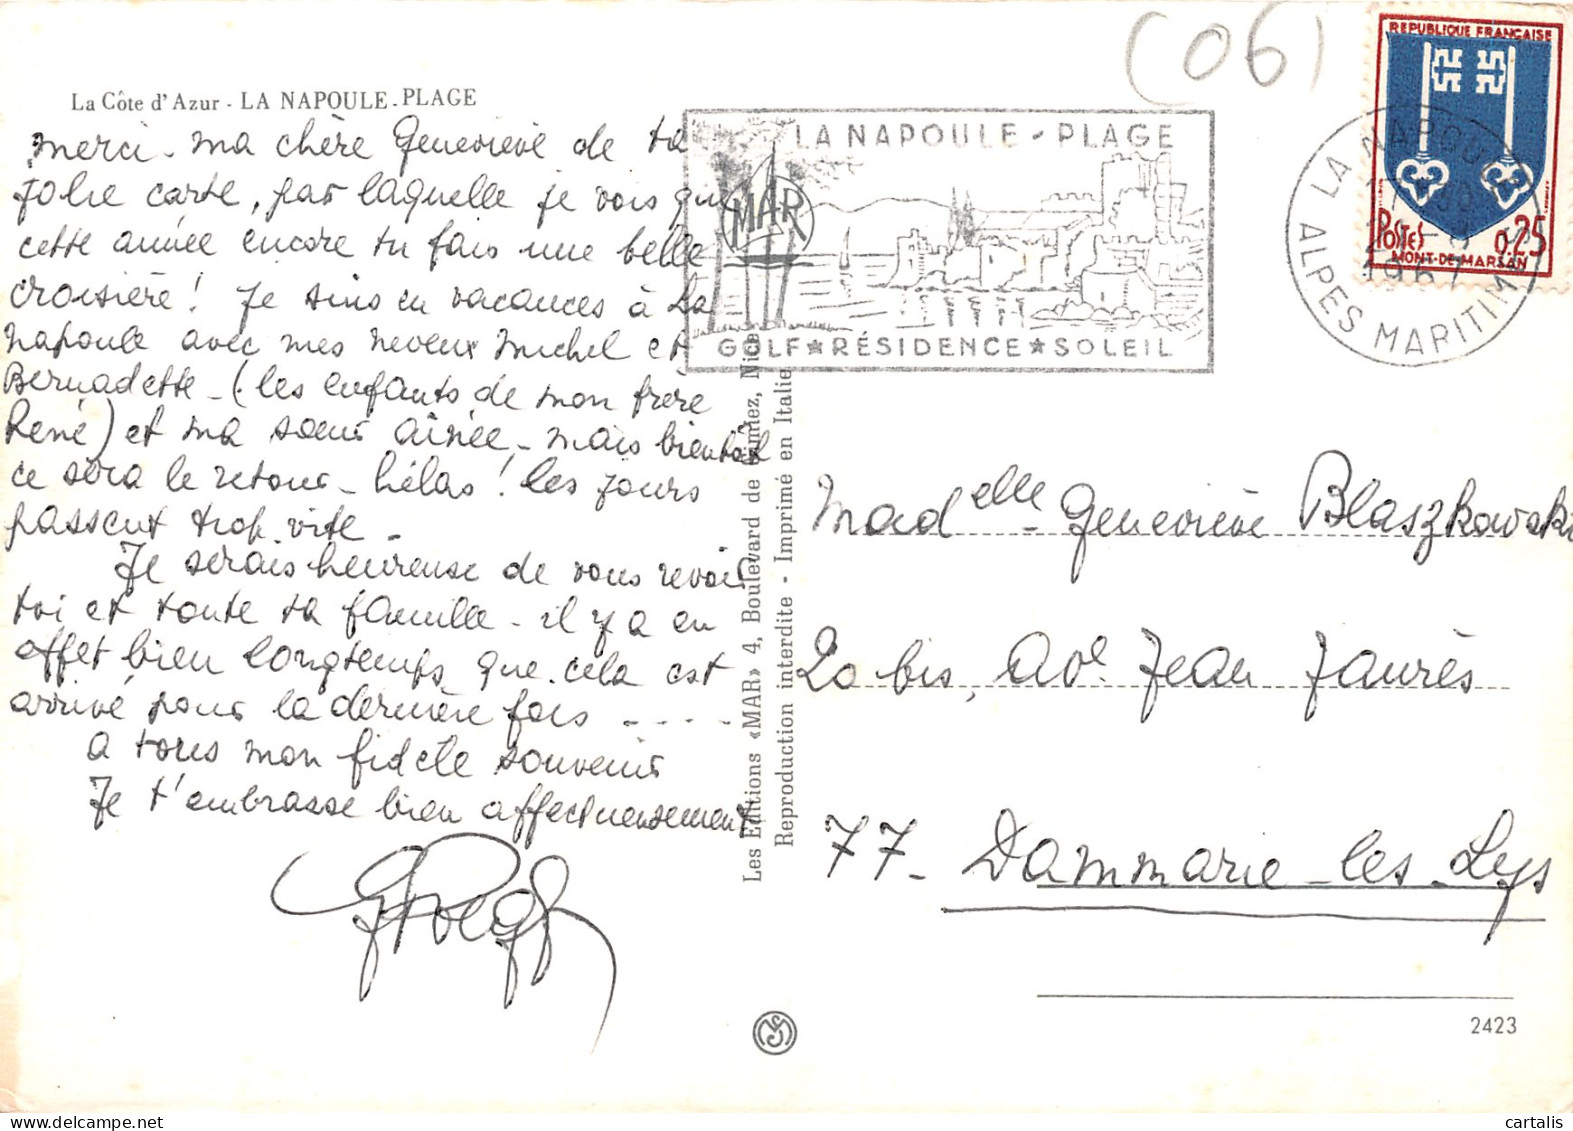 La Côte d'Azur - LA NAPOULE-PLAGE
merci - ma chère Geneviève de ta
jolie carte, par laquelle je vois que
cette année encore tu fais une belle
croisière ! Je suis en vacances à La
Napoule avec mes neveux Michel et
Bernadette - (les enfants de mon frère
René) et ma sœur aînée - mais bientôt
ce sera le retour - hélas ! les jours
passent trop vite -
Je serais heureuse de vous revoir
toi et toute ta famille - il y a en
effet bien longtemps que cela est
arrivé pour la dernière fois - - - -
A tous mon fidèle souvenir
Je t'embrasse bien affectueusement
Les Editions «MAR» 4, Boulevard de Cimiez, Nice
Reproduction interdite - Imprimé en Italie
(06)
LA NAPOULE - PLAGE
MAR
GOLF ★ RÉSIDENCE ★ SOLEIL
LA NAPOULE
1967
ALPES MARITIMES
REPUBLIQUE FRANÇAISE
POSTES 0,25
MONT-DE-MARSAN
Madelle Geneviève Blaszkowski
20 bis, ave Jean Jaurès
77 - Dammarie-les-Lys
2423
cartalis